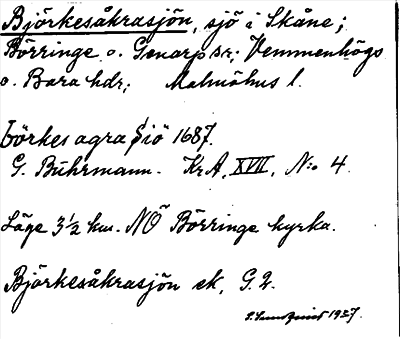 Björkesåkrasjön, sjö i Skåne;
Börringe o. Genarp sr; Vemmenhögs
o. Bara hdr; Malmöhus l.
börkes agra Siö 1687.
G. Buhrmann. KrA, XVII, N:o 4.
Läge 3½ km. NÖ Börringe kyrka.
Björkesåkrasjön ek, G. 2.
1927.